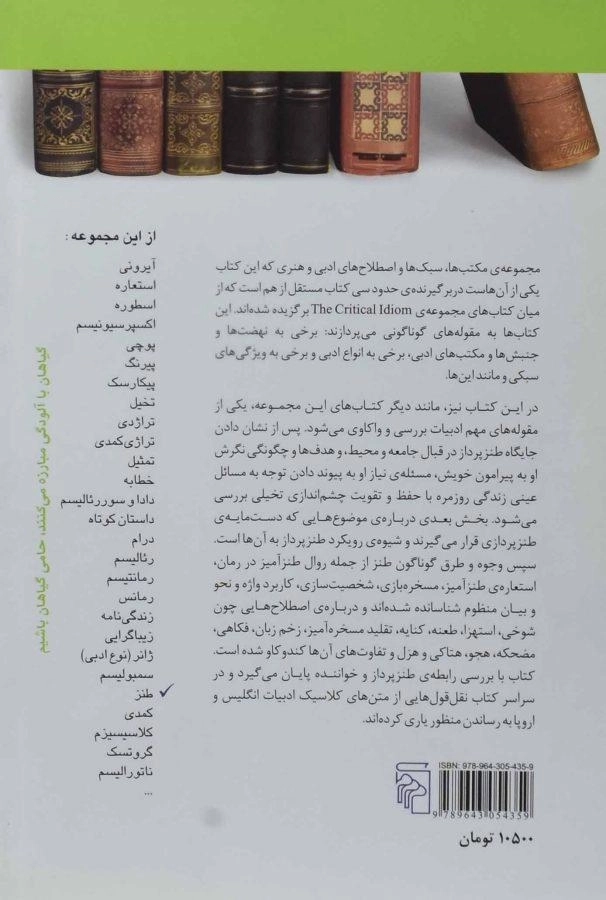 مجموعه‌ی مکتب‌ها، سبک‌ها و اصطلاح‌های ادبی و هنری که این کتاب
یکی از آن‌هاست دربرگیرنده‌ی حدود سی کتاب مستقل از هم است که از
میان کتاب‌های مجموعه‌ی The Critical Idiom برگزیده شده‌اند. این
کتاب‌ها به مقوله‌های گوناگونی می‌پردازند: برخی به نهضت‌ها و
جنبش‌ها و مکتب‌های ادبی، برخی به انواع ادبی و برخی به ویژگی‌های
سبکی و مانند این‌ها.
در این کتاب نیز، مانند دیگر کتاب‌های این مجموعه، یکی از
مقوله‌های مهم ادبیات بررسی و واکاوی می‌شود. پس از نشان دادن
جایگاه طنزپرداز در قبال جامعه و محیط، و هدف‌ها و چگونگی نگرش
او به پیرامون خویش، مسئله‌ی نیاز او به پیوند دادن توجه به مسائل
عینی زندگی روزمره با حفظ و تقویت چشم‌اندازی تخیلی بررسی
می‌شود. بخش بعدی درباره‌ی موضوع‌هایی که دست‌مایه‌ی
طنزپردازی قرار می‌گیرند و شیوه‌ی رویکرد طنزپرداز به آن‌ها است.
سپس وجوه و طرق گوناگون طنز از جمله روال طنزآمیز در رمان،
استعاره‌ی طنزآمیز، مسخره‌بازی، شخصیت‌سازی، کاربرد واژه و نحو
و بیان منظوم شناسانده شده‌اند و درباره‌ی اصطلاح‌هایی چون
شوخی، استهزا، طعنه، کنایه، تقلید مسخره‌آمیز، زخم زبان، فکاهی،
مضحکه، هجو، هتاکی و هزل و تفاوت‌های آن‌ها کندوکاو شده است.
کتاب با بررسی رابطه‌ی طنزپرداز و خواننده پایان می‌گیرد و در
سراسر کتاب نقل‌قول‌هایی از متن‌های کلاسیک ادبیات انگلیس و
اروپا به رساندن منظور یاری کرده‌اند.
ISBN: 978-964-305-435-9
9 789643 054359
۱۰۵۰۰ تومان
از این مجموعه :
آیرونی
استعاره
اسطوره
اکسپرسیونیسم
پوچی
پیرنگ
پیکارسک
تخیل
تراژدی
تراژی‌کمدی
تمثیل
خطابه
دادا و سوررئالیسم
داستان کوتاه
درام
رئالیسم
رمانتیسم
رمانس
زندگی‌نامه
زیباگرایی
ژانر (نوع ادبی)
سمبولیسم
✓ طنز
کمدی
کلاسیسیزم
گروتسک
ناتورالیسم
...
گیاهان با آلودگی مبارزه می‌کنند، حامی گیاهان باشیم